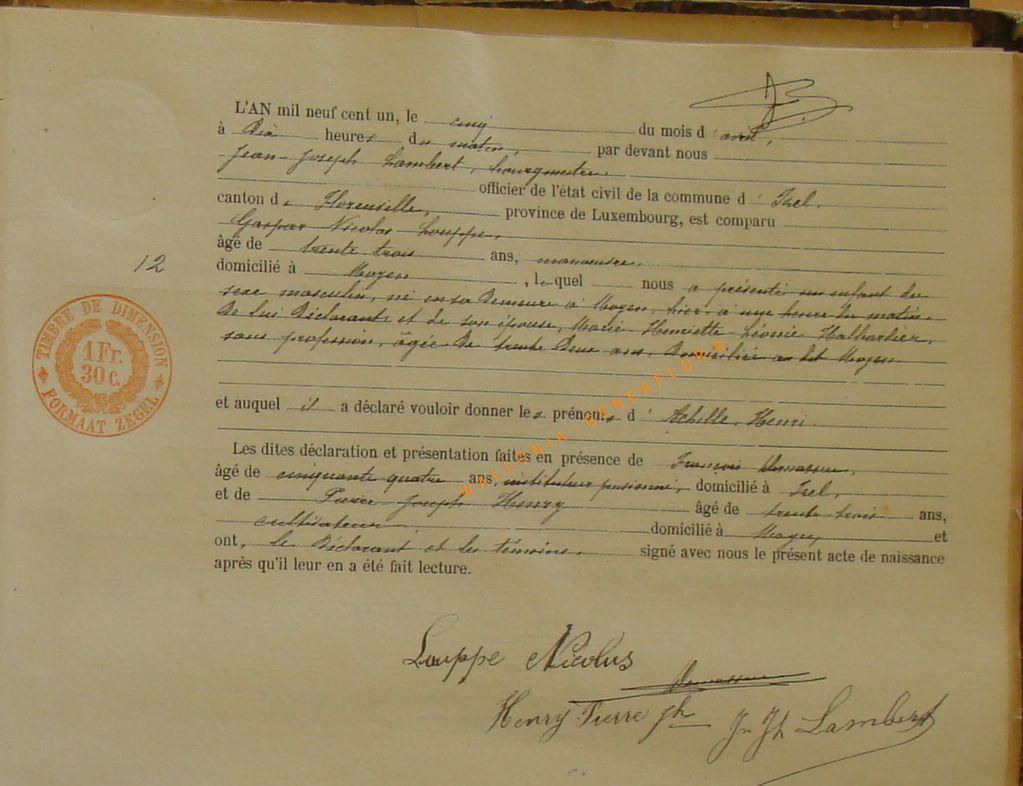 L'AN mil neuf cent un, le cinq du mois d'avril,
à Dix heures du matin, par devant nous
Jean-Joseph Lambert, bourgmestre
officier de l'état civil de la commune d'Izel,
canton de Florenville, province de Luxembourg, est comparu
Gaspar Nicolas Louppe,
âgé de trente trois ans, manœuvre,
domicilié à Moyen, lequel nous a présenté un enfant du
sexe masculin, né en sa demeure à Moyen, hier, à une heure du matin
De lui Déclarant et de son épouse, Marie Henriette Léonie Halbardier,
sans profession, âgée de trente Deux ans, Domiciliée au dit Moyen
12
TIMBRE DE DIMENSION
1 Fr.
30 c.
FORMAAT ZEGEL
et auquel il a déclaré vouloir donner les prénoms d'Achille, Henri
Les dites déclaration et présentation faites en présence de François
âgé de cinquante quatre ans, instituteur pensionné, domicilié à Izel,
et de Pierre Joseph Henry âgé de trente trois ans,
cultivateur domicilié à Moyen et
ont, le Déclarant et les témoins, signé avec nous le présent acte de naissance
après qu'il leur en a été fait lecture.
WALLONIA-GENEAFLOR
Louppe Nicolas
Henry Pierre Jh
Jn Jh Lambert